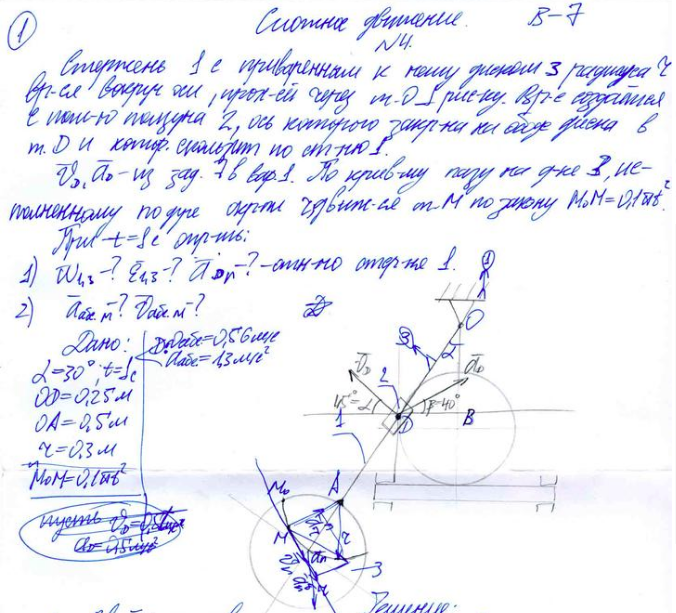 1
Сложное движение. В-7
№4.
Стержень 1 с приваренным к нему диском 3 радиуса r
вр-ся вокруг оси, прох-ей через т. О ⊥ рис-ку. Вр-е создаётся
с пом-ю ползуна 2, ось которого закр-на на ободе диска в
т. D и котор. скользит по ст-ню 1.
из зад. в вар. 1. По крив-му пазу на д-ке 3, ис-
полненному по дуге окр-ти движ-ся т. М по закону M₀M=0,1πt².
При t=1с опр-ть:
1) ω̄1,3-? ε̄1,3-? āDr-? -отн-но стер-ня 1.
2) āабс.м-? v̄абс.м-?
Дано:
α=30°; t=1с
OD=0,25м
OA=0,5м
r=0,3м
M₀M=0,1πt²
vDабс=0,56м/с
aDабс=1,3м/с²
пусть
1
O
3
α
v̄D
2
āD
β=40°
D
B
1
A
M₀
M
r
3